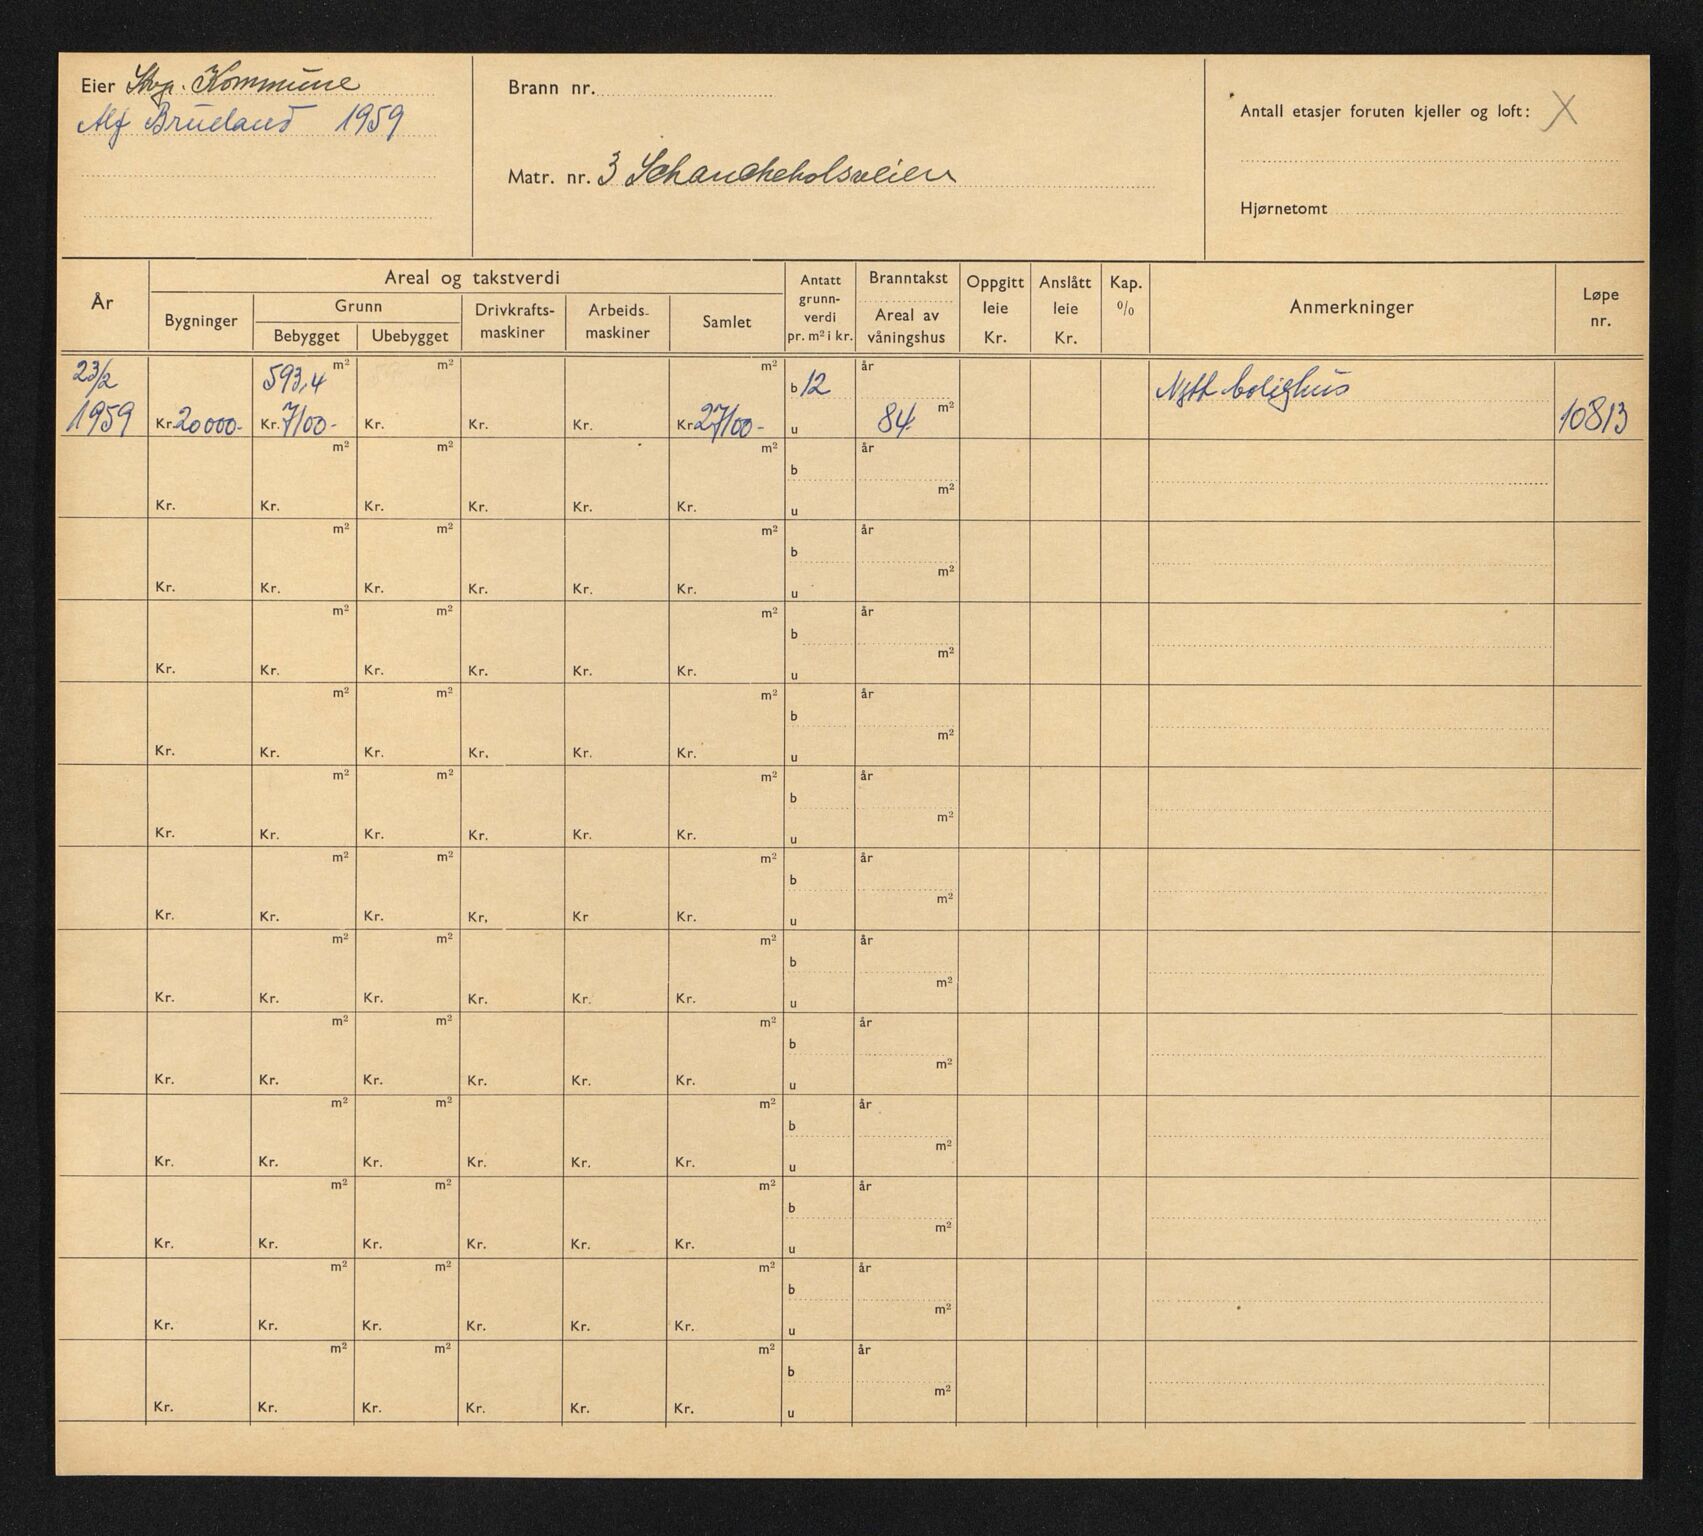 Eier Stvg. Kommune
Alf Brueland 1959
Brann nr.
Matr. nr. 3 Schancheholsveien
Antall etasjer foruten kjeller og loft: X
Hjørnetomt
År
Areal og takstverdi
Bygninger
Grunn
Bebygget
Ubebygget
Drivkrafts-
maskiner
Arbeids-
maskiner
Samlet
Antatt
grunn-
verdi
pr. m² i kr.
Branntakst
Areal av
våningshus
Oppgitt
leie
Kr.
Anslått
leie
Kr.
Kap.
%
Anmerkninger
Løpe
nr.
23/2 593,4 m² m² m² b 12 år Nytt bolighus
1959 Kr. 20000- Kr. 7100- Kr. Kr. Kr. Kr. 27100- u 84 m² 10813
m² m² m² b år
Kr. Kr. Kr. Kr. Kr. Kr. u m²
m² m² m² b år
Kr. Kr. Kr. Kr. Kr. Kr. u m²
m² m² m² b år
Kr. Kr. Kr. Kr. Kr. Kr. u m²
m² m² m² b år
Kr. Kr. Kr. Kr. Kr. Kr. u m²
m² m² m² b år
Kr. Kr. Kr. Kr. Kr. Kr. u m²
m² m² m² b år
Kr. Kr. Kr. Kr. Kr Kr. u m²
m² m² m² b år
Kr. Kr. Kr. Kr. Kr. Kr. u m²
m² m² m² b år
Kr. Kr. Kr. Kr. Kr. Kr. u m²
m² m² m² b år
Kr. Kr. Kr. Kr. Kr. Kr. u m²
m² m² m² b år
Kr. Kr. Kr. Kr. Kr. Kr. u m²
m² m² m² b år
Kr. Kr. Kr. Kr. Kr. Kr. u m²
m² m² m² b år
Kr. Kr. Kr. Kr. Kr. Kr. u m²